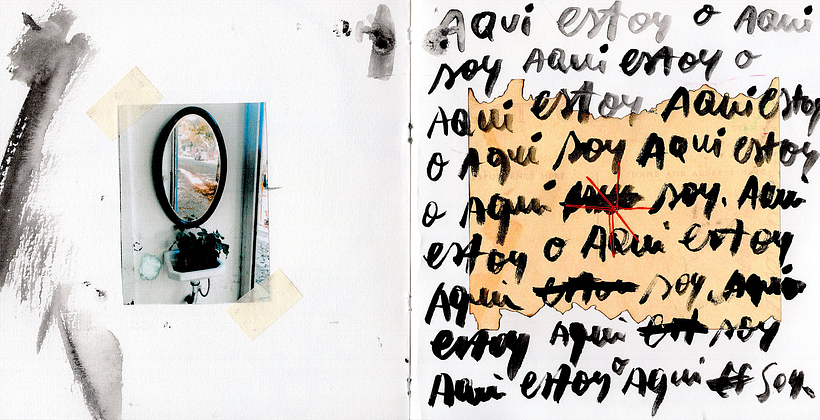 Aqui estoy o Aqui
soy Aqui estoy o
Aqui estoy Aqui estoy
o Aqui soy Aqui estoy
o Aqui soy. Aqui
estoy o Aqui estoy
Aqui estoy soy. Aqui
estoy Aqui est soy
Aqui estoy o Aqui soy.